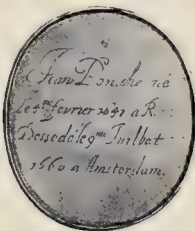 Jean Ponche né
le 4me fevrier 1641 a R.
Decedé le 9me Juilbet
1660 a Amsterdam.